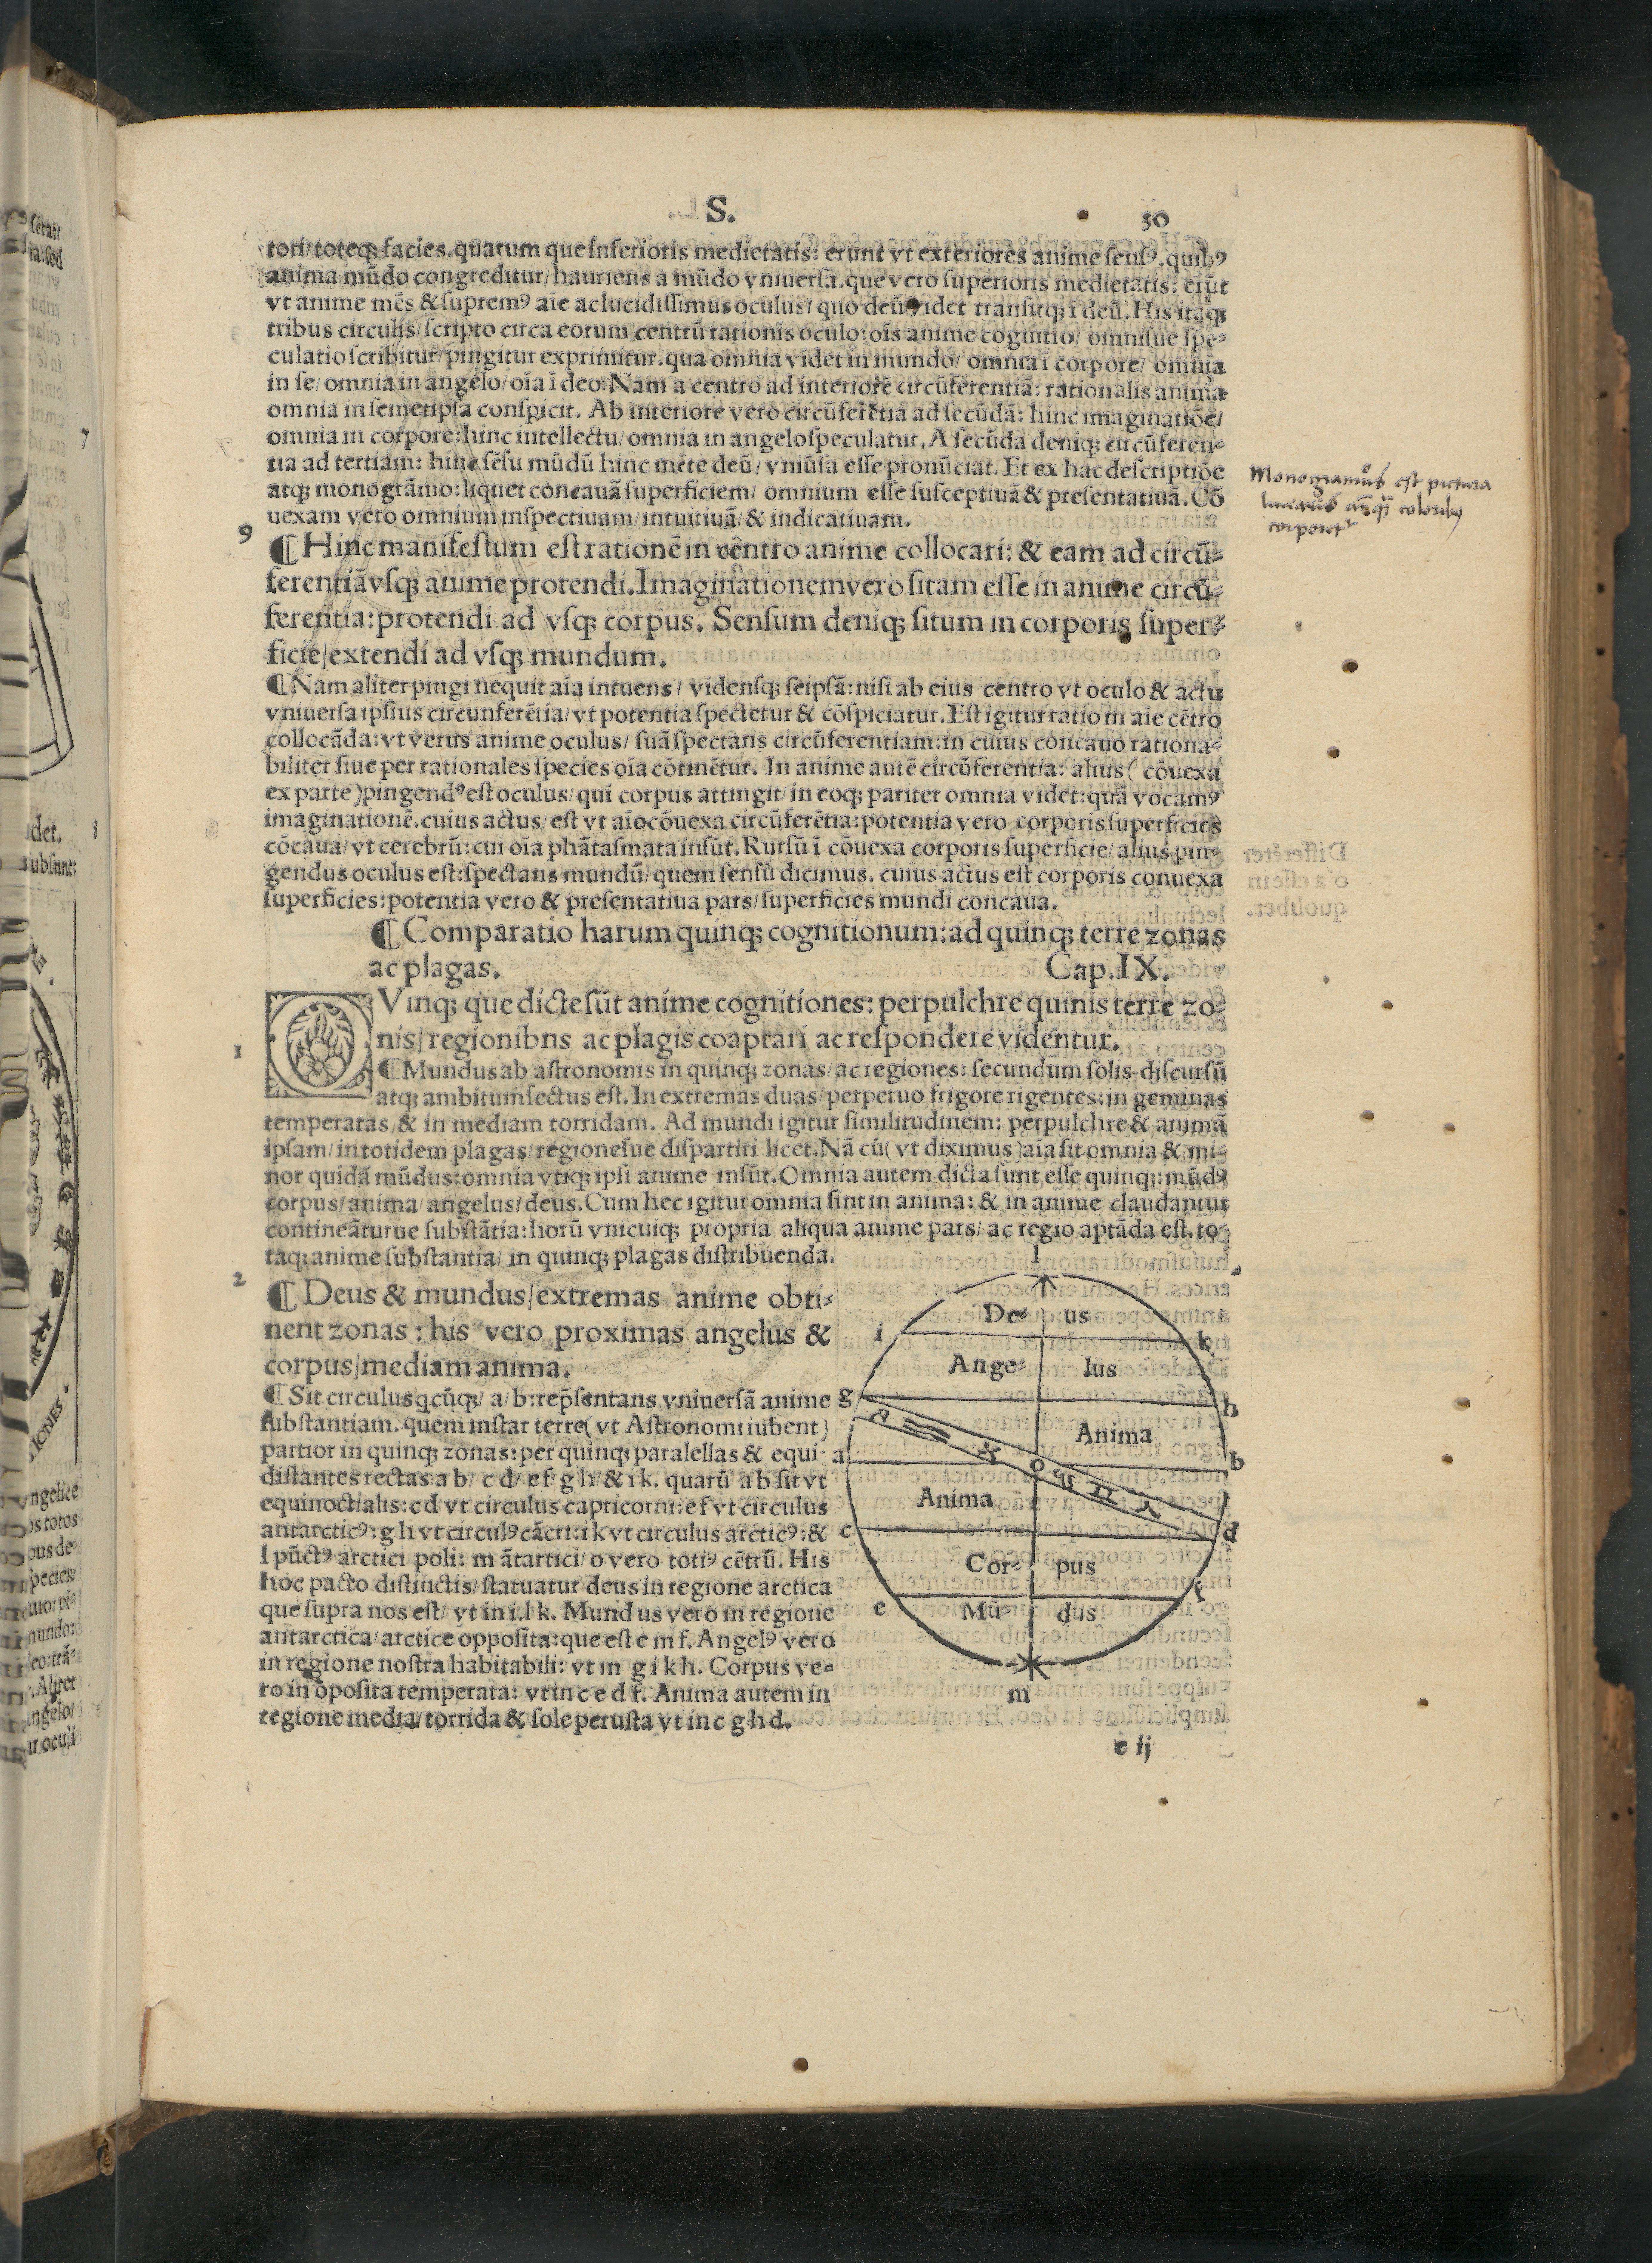 S.
30
toti/toteqꝫ facies.quarum que inferioris medietatis: erunt vt exteriores anime sensꝰ.quibꝰ
anima mūdo congreditur/hauriens a mūdo vniuersā.que vero superioris medietatis: erūt
vt anime mēs & supremꝰ aīe ac lucidissimus oculus/ quo deū videt transitqꝫ ī deū. His itaqꝫ
tribus circulis/scripto circa eorum centrū rationis oculo:oīs anime cognitio/ omnisue spe-
culatio scribitur/pingitur exprimitur.qua omnia videt in mundo/ omnia ī corpore/ omnia
in se/ omnia in angelo/ oīa ī deo.Nam a centro ad interiorē circūferentiā: rationalis anima
omnia in semetipsa conspicit. Ab interiore vero circūferētia ad secūdā: hinc imaginatiōe/
omnia in corpore:hinc intellectu/omnia in angelo speculatur. A secūda deniqꝫ circūferen-
tia ad tertiam: hinc sēsu mūdū hinc mēte deū/ vniūsa esse pronūciat. Et ex hac descriptiōe
atqꝫ monogrāmo:liquet concauā superficiem/ omnium esse susceptiuā & presentatiuā. Cō
uexam vero omnium inspectiuam/intuitiuā/& indicatiuam.
Monogramus est pictura
9
¶ Hinc manifestum est rationē in cētro anime collocari: & eam ad circū-
ferentiā vsqꝫ anime protendi.Imaginationem vero sitam esse in anime circū-
ferentia:protendi ad vsqꝫ corpus. Sensum deniqꝫ situm in corporis super-
ficie/extendi ad vsqꝫ mundum.
¶ Nam aliter pingi nequit aīa intuens/ vidensqꝫ seipsā:nisi ab eius centro vt oculo & actu
vniuersa ipsius circunferētia/vt potentia spectetur & cōspiciatur.Est igitur ratio in aīe cētro
collocāda:vt verus anime oculus/ suā spectans circūferentiam:in cuius concauo rationa-
biliter siue per rationales species oīa cōtinētur. In anime autē circūferentia: alius( cōuexa
ex parte)pingendꝰ est oculus/qui corpus attingit/in eoqꝫ pariter omnia videt:quā vocamꝰ
imaginationē.cuius actus/ est vt aīe cōuexa circūferētia:potentia vero corporis superficies
cōcaua/vt cerebrū:cui oīa phātasmata insūt.Rursū ī cōuexa corporis superficie/alius pin-
gendus oculus est:spectans mundū/quem sensū dicimus. cuius actus est corporis conuexa
superficies:potentia vero & presentatiua pars/superficies mundi concaua.
¶ Comparatio harum quinqꝫ cognitionum:ad quinqꝫ terre zonas
ac plagas. Cap.IX.
QVinqꝫ que dicte sūt anime cognitiones: perpulchre quinis terre zo-
nis/regionibns ac plagis coaptari ac respondere videntur.
1
¶ Mundus ab astronomis in quinqꝫ zonas/ac regiones: secundum solis discursū
atqꝫ ambitum sectus est. In extremas duas/perpetuo frigore rigentes:in geminas
temperatas/& in mediam torridam. Ad mundi igitur similitudinem: perpulchre & animā
ipsam/in totidem plagas/regionesue dispartiri licet.Nā cū( vt diximus )aīa sit omnia & mi-
nor quidā mūdus:omnia vtiqꝫ ipsi anime insūt.Omnia autem dicta sunt esse quinqꝫ:mūdꝰ
corpus/anima/angelus/deus.Cum hec igitur omnia sint in anima: & in anime claudantur
contineāturue substātia:horū vnicuiqꝫ propria aliqua anime pars/ac regio aptāda est.to-
taqꝫ anime substantia/ in quinqꝫ plagas distribuenda.
2
¶ Deus & mundus/extremas anime obti-
nent zonas : his vero proximas angelus &
corpus/mediam anima.
¶ Sit circulus qcūqꝫ/ a/ b:rep̄sentans vniuersā anime
substantiam.quem instar terre( vt Astronomi iubent)
partior in quinqꝫ zonas:per quinqꝫ paralellas & equi
distantes rectas a b/ c d/ e f/ g h/& i k. quarū a b sit vt
equinoctialis:c d vt circulus capricorni:e f vt circulus
antarcticꝰ:g h vt circulꝰ cācri:i k vt circulus arcticꝰ:&
l pūctꝰ arctici poli: m ātartici/o vero totiꝰ cētrū. His
hoc pacto distinctis/statuatur deus in regione arctica
que supra nos est/ vt in i.l k. Mundus vero in regione
antarctica/arctice opposita:que est e m f. Angelꝰ vero
in regione nostra habitabili: vt in g i k h. Corpus ve-
ro in oposita temperata: vt in c e d f. Anima autem in
regione media/torrida & sole perusta vt in c g h d.
l
De- us
i k
Ange- lus
g h
Anima
a o b
Anima
c d
Cor- pus
e f
Mū- dus
m
e ij